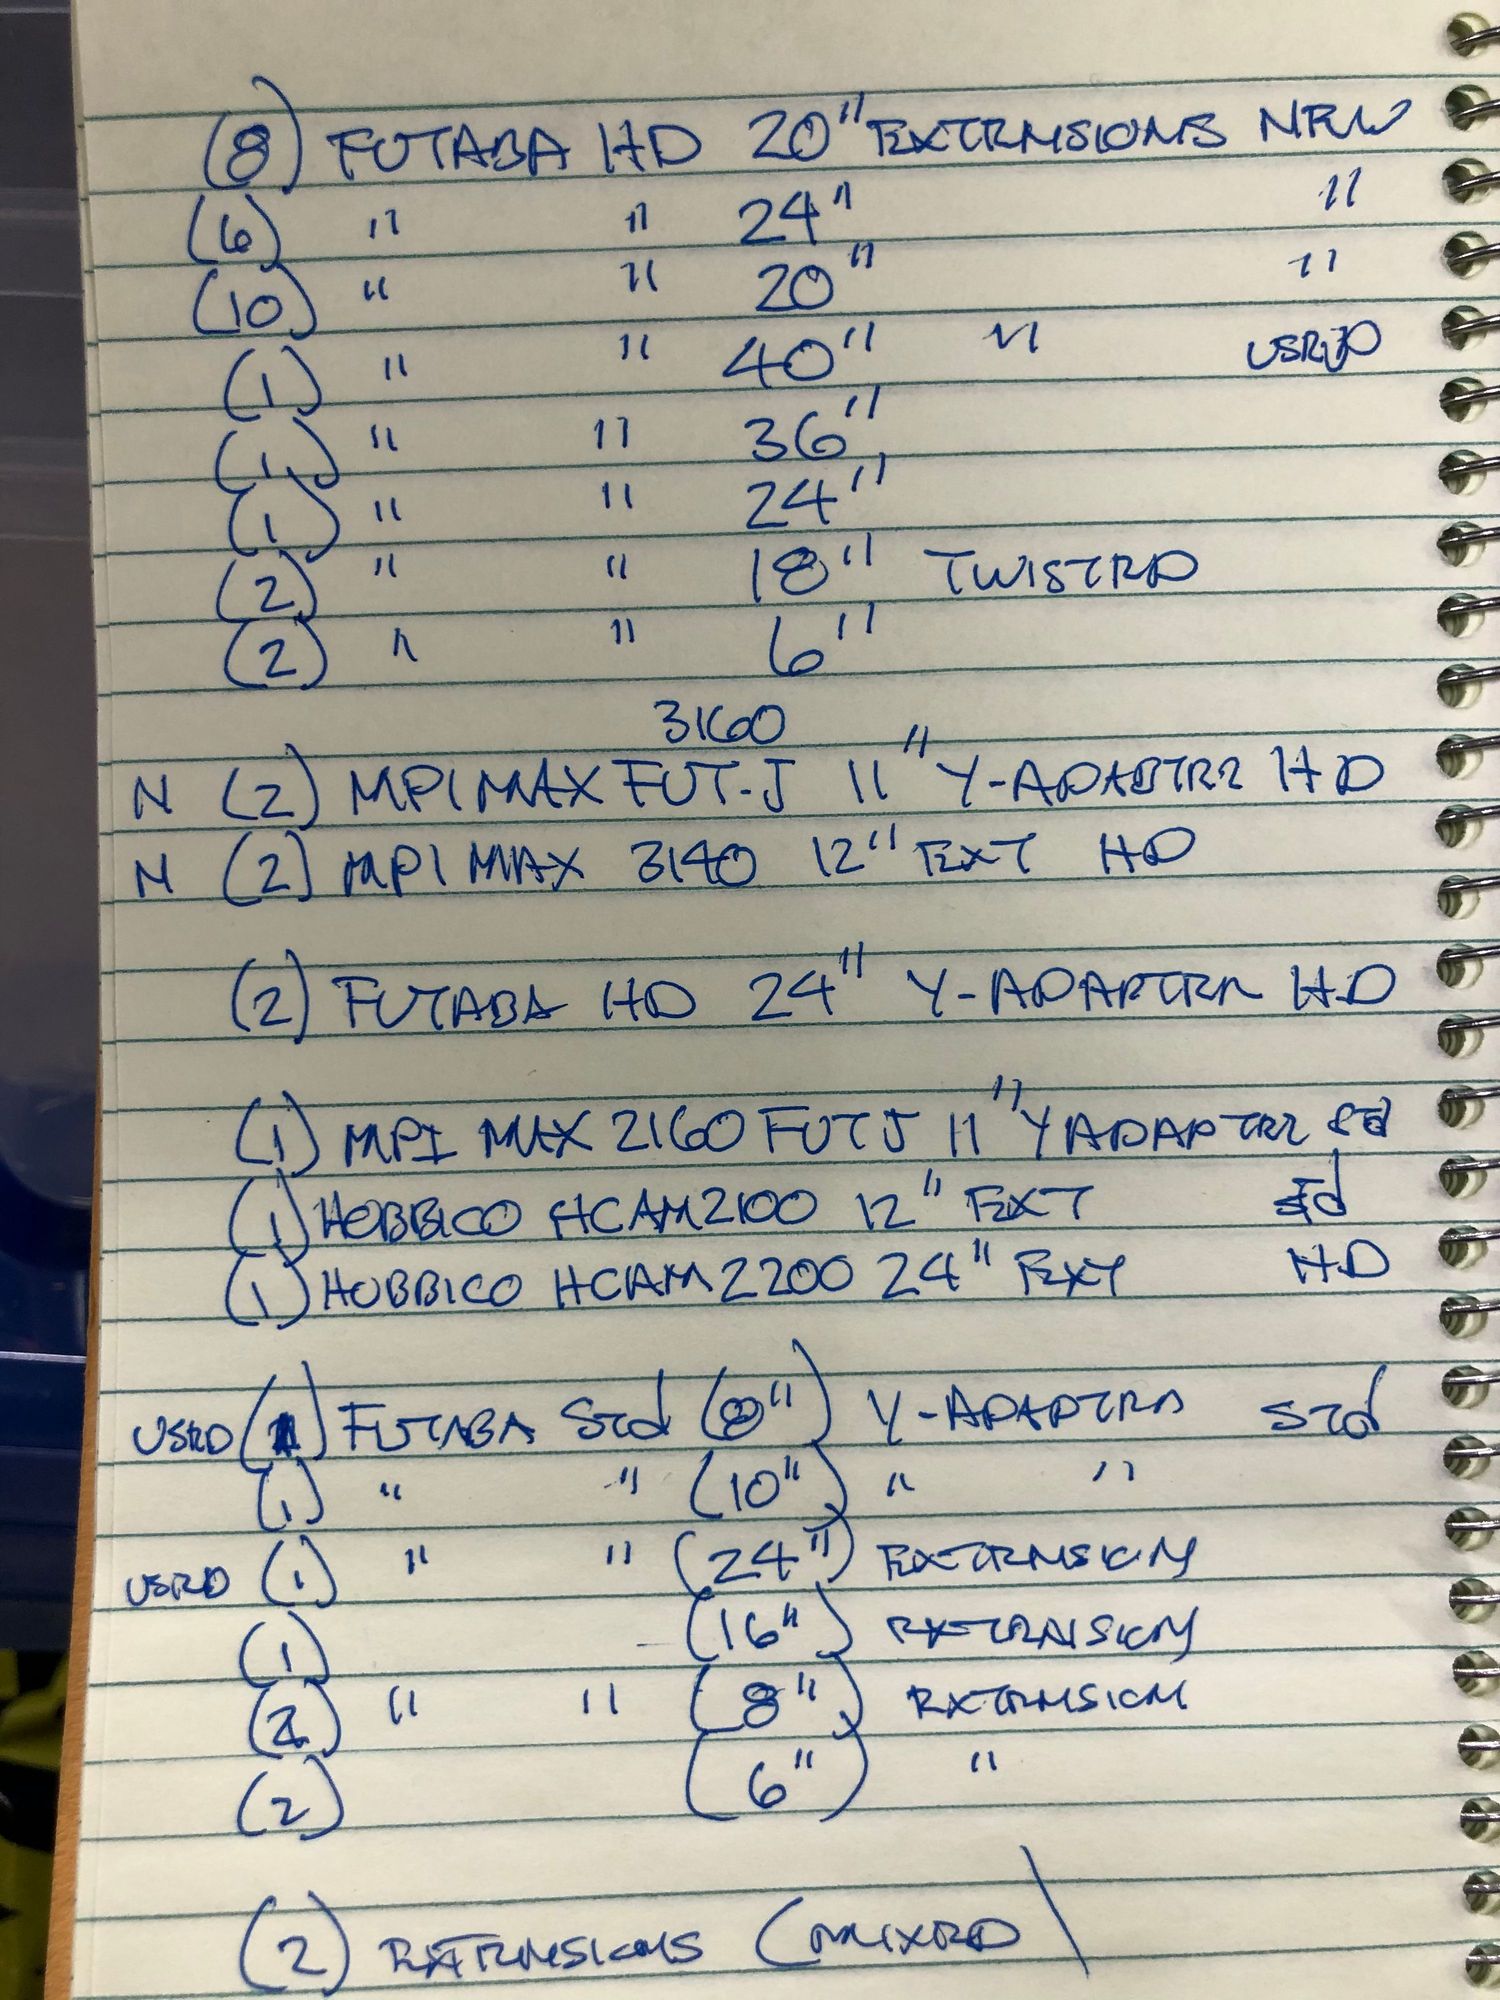 (8) FUTABA HD 20" EXTENSIONS NEW
(6) " " 24" "
(10) " " 20" "
(1) " " 40" " USED
(1) " " 36"
(1) " " 24"
(2) " " 18" TWISTED
(2) " " 6"
3160
N (2) MPI MAX FUT-J 11" Y-ADABTER HD
N (2) MPI MAX 3140 12" EXT HD
(2) FUTABA HD 24" Y-ADAPTER HD
(1) MPI MAX 2160 FUTJ 11" Y ADAPTER
(1) HOBBICO HCAM2100 12" EXT Std
(1) HOBBICO HCAM2200 24" EXT HD
USED (1) FUTABA Std (8") Y-ADAPTER Std
(1) " " (10") " "
USED (1) " " (24") EXTENSION
(1) (16") EXTENSION
(2) " " (8") EXTENSION
(2) (6") "
(2) EXTENSIONS (MIXED)